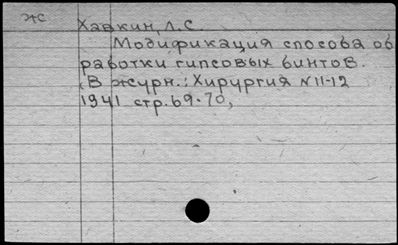 Ж
Хавкин, Л.С.
Модификация способа об
работки гипсовых бинтов.
(В журн.: Хирургия №11-12
1941 стр. 69-70,